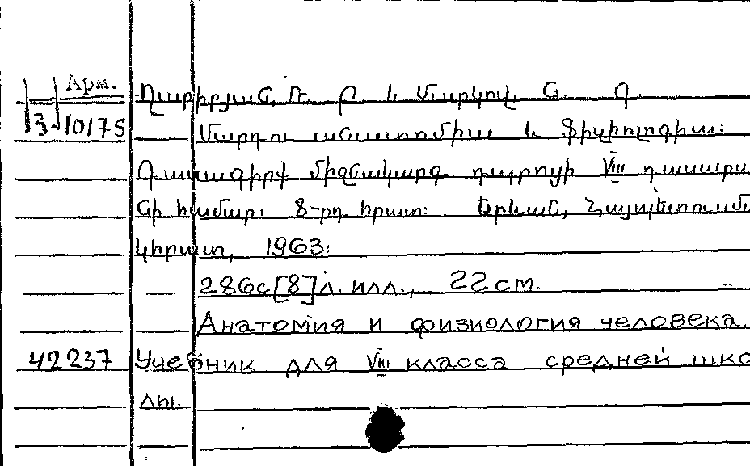 Арм.
3-10175
Մարդու անատոմիա և ֆիզիոլոգիա:
Դասագիրք միջնակարգ դպրոցի VIII դասարա
նի համար: 8-րդ հրատ: Երևան, Հայպետուսմ
հրատ, 1963:
286с[8]л. илл., 22 см.
Анатомия и физиология человека.
42237 Учебник для VIII класса средней шко
лы.